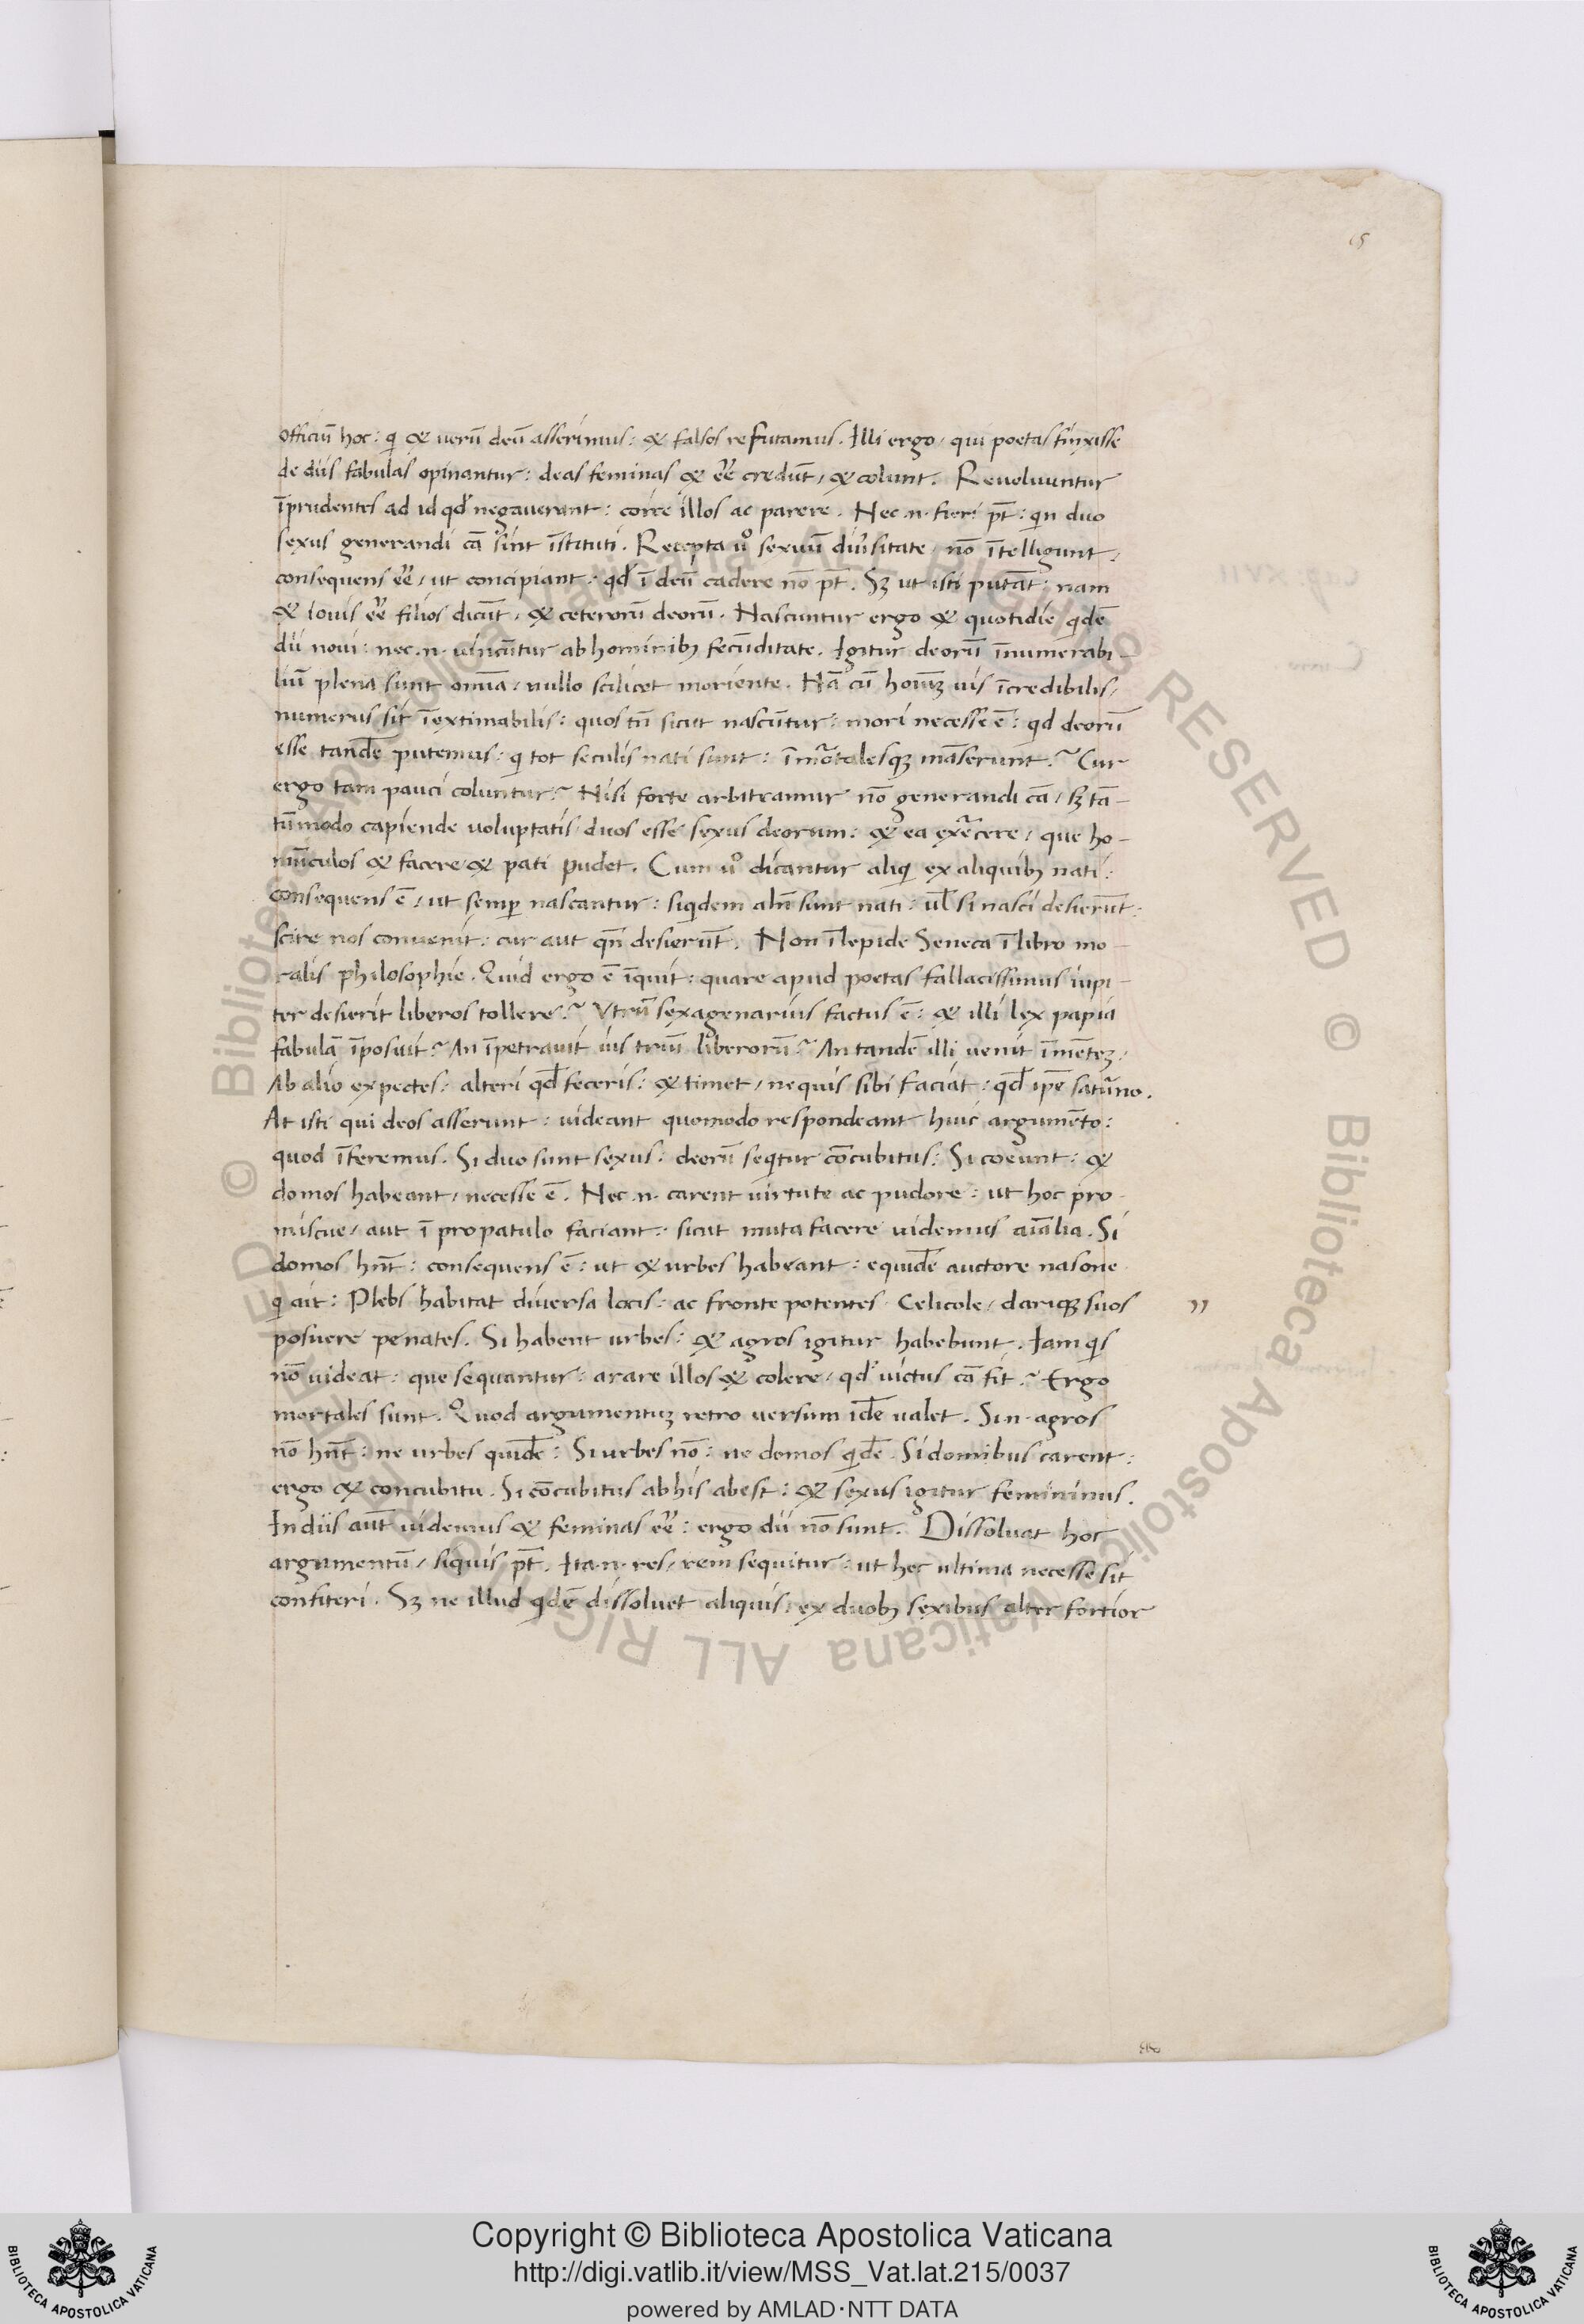 15
officiū hoc: qi & uerū deū asserimus: & falsos refutamus. Illi ergo / qui poetas finxisse
de diis fabulas opinantur: deas feminas & eē credūt / & colunt. Reuoluuntur
īprudentes ad id qđ negauerant: coire illos ac parere. Nec .n. fieri pt̄: qn duo
sexus generandi cā sint īstituti. Recepta uº sexuū diuersitate / nō ītelligunt /
consequens eē / ut concipiant: qđ ī deū cadere nō pt̄. Sꝫ ut isti putāt: nam
& iouis eē filios dicūt / & ceterorū deorū. Nascuntur ergo & quotidie qdē
dii noui: nec .n. uincūtur ab hominibꝫ fecūditate. Igitur deorū īnumerabi-
liū plena sunt omīa / nullo scilicet moriente. Nā cū hoīuꝫ uis īcredibilis /
numerus sit īextimabilis: quos tn̄ sicut nascūtur: mori necesse ē: qd deorū
esse tandē putemus: qi tot seculis nati sunt: īmortalesqꝫ māserunt? Cur
ergo tam pauci coluntur? Nisi forte arbitramur nō generandi cā / sꝫ tā-
tūmodo capiende uoluptatis / duos esse sexus deorum: & ea exercere / que ho-
mūculos & facere & pati pudet. Cum uº dicantur aliqi ex aliquibꝫ nati:
consequens ē / ut semp̄ nascantur: siqidem aliqn̄ sunt nati: ul̄ si nasci desierūt:
scire nos conuenit: cur aut qn̄ desierūt. Non īlepide Seneca ī libro mo-
ralis philosophie. Quid ergo ē īquit: quare apud poetas fallacissimus iupi-
ter desierit liberos tollere? Vtrū sexagenarius factus ē: & illi lex papia
fabulā īposuit? An īpetrauit ius triū liberorū? An tandē illi uenit ī mēteꝫ /
Ab alio expectes: alteri qđ feceris: & timet / ne quis sibi faciat: qđ ipē saturno.
At isti qui deos asserunt: uideant quomodo respondeant huic argumēto:
quod īferemus. Si duo sunt sexus: deorū seqitur cōcubitus: Si coeunt: &
domos habeant / necesse ē. Nec .n. carent uirtute ac pudore: ut hoc pro
miscue / aut ī propatulo faciant: sicut muta facere uidemus aīalia. Si
domos hn̄t: consequens ē: ut & urbes habeant: equidē auctore nasone
qi ait: Plebs habitat diuersa locis: ac fronte potentes Celicole / clariqꝫ suos
”
posuere penates. Si habent urbes: & agros igitur habebunt. Iam qis
nō uideat: que sequantur: arare illos & colere / qđ uictus cā fit? Ergo
mortales sunt. Quod argumentuꝫ retro uersum idē ualet. Si .n. agros
nō hn̄t: ne urbes quidē: Si urbes nō: ne domos qidē. Si domibus carent:
ergo & concubitu. Si cōcubitus ab his abest: & sexus igitur femininus.
In diis aūt uidemus & feminas eē: ergo dii nō sunt. Dissoluat hoc
argumentū / siquis pt̄. Ita .n. res / rem sequitur: ut hec ultima necesse sit
confiteri. Sꝫ ne illud qdē dissoluet aliquis: ex duobꝫ sexibus alter fortior
© Biblioteca Apostolica Vaticana ALL RIGHTS RESERVED © Biblioteca Apostolica Vaticana ALL RIGHTS RESERVED
Copyright © Biblioteca Apostolica Vaticana
http://digi.vatlib.it/view/MSS_Vat.lat.215/0037
powered by AMLAD·NTT DATA
BIBLIOTECA APOSTOLICA VATICANA
BIBLIOTECA APOSTOLICA VATICANA